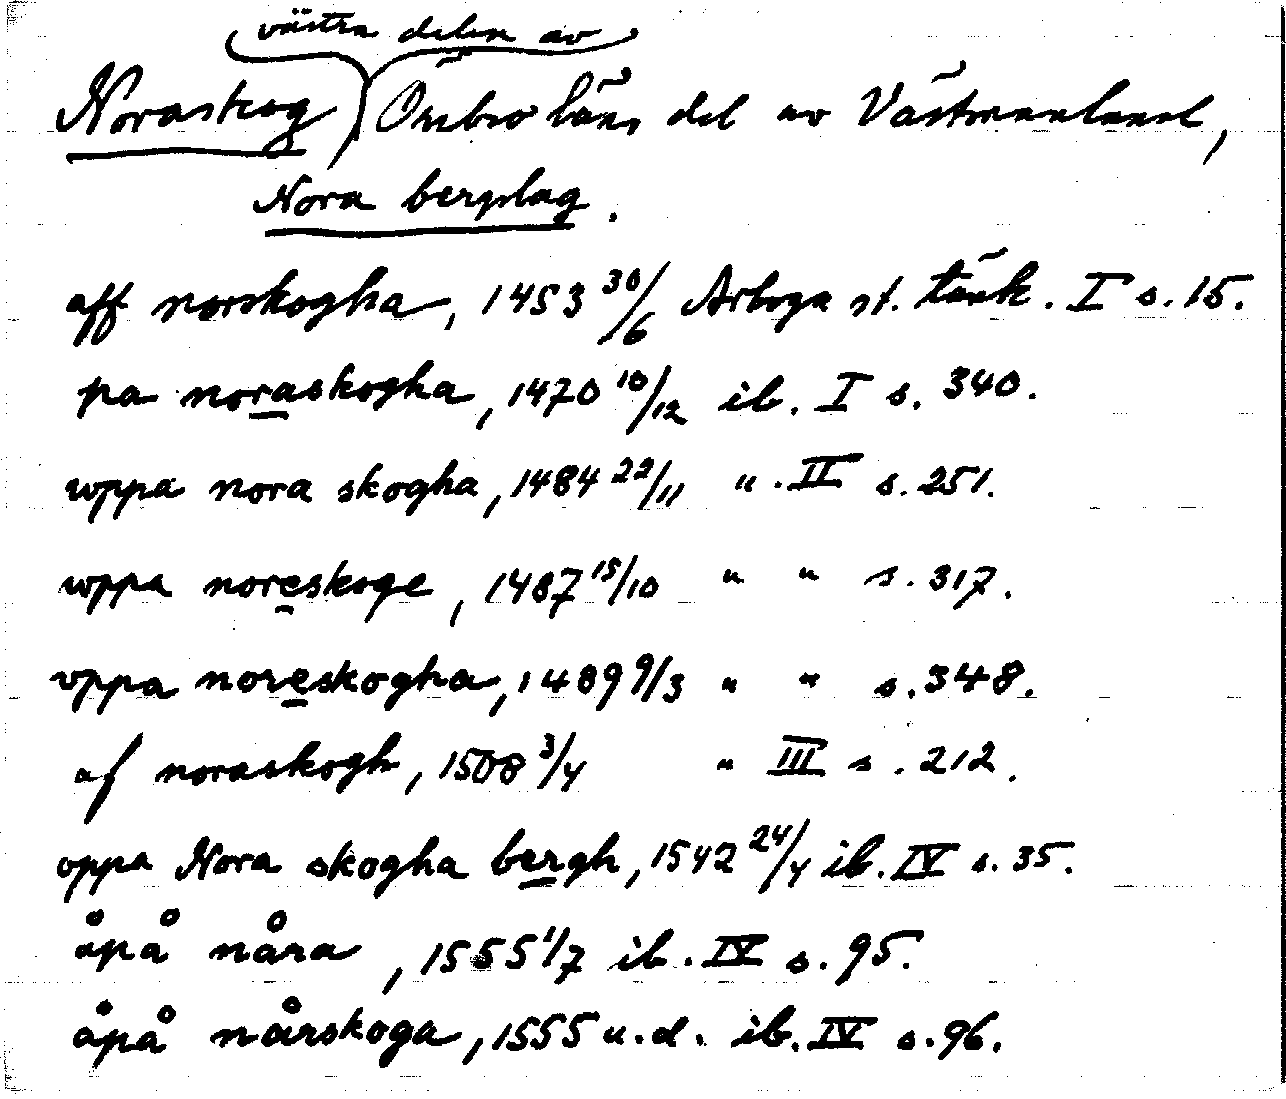 västra delen av
Noraskog) Örebro läns del av Västmanland,
Nora bergslag.
aff norskogha, 1453 30/6 Arboga st. tänk. I s. 15.
pa noraskogha, 1470 10/12 ib. I s. 340.
wppa nora skogha, 1484 22/11 " . II s. 251.
wppa noreskoge, 1487 15/10 " " s. 317.
vppa noreskogha, 1489 9/3 " " s. 348.
af noraskogh, 1508 3/4 " III s. 212.
oppa Nora skogha bergh, 1542 24/4 ib. IV s. 35.
åpå nåra, 1555 1/7 ib. IV s. 95.
åpå nårskoga, 1555 u.d. ib. IV s. 96.